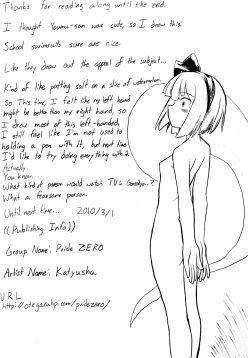 Thanks for reading along until the end.
I thought Youmu-san was cute, so I drew this.
School swimsuits sure are nice.
Like they draw out the appeal of the subject...
Kind of like putting salt on a slice of watermelon.
So. This time, I felt like my left hand
might be better than my right hand, so
I drew most of this left-handed.
I still feel like I'm not used to
holding a pen with it, but next time
I'd like to try doing everything with it.
Actually,
You know
What kind of person would watch TV &
What a fearsome person.
Until next time... 2010/3/1
((Publishing Info))
Group Name: Pride ZERO
Artist Name: Katyusha
URL
http://otegaruhp.com/pridezero/